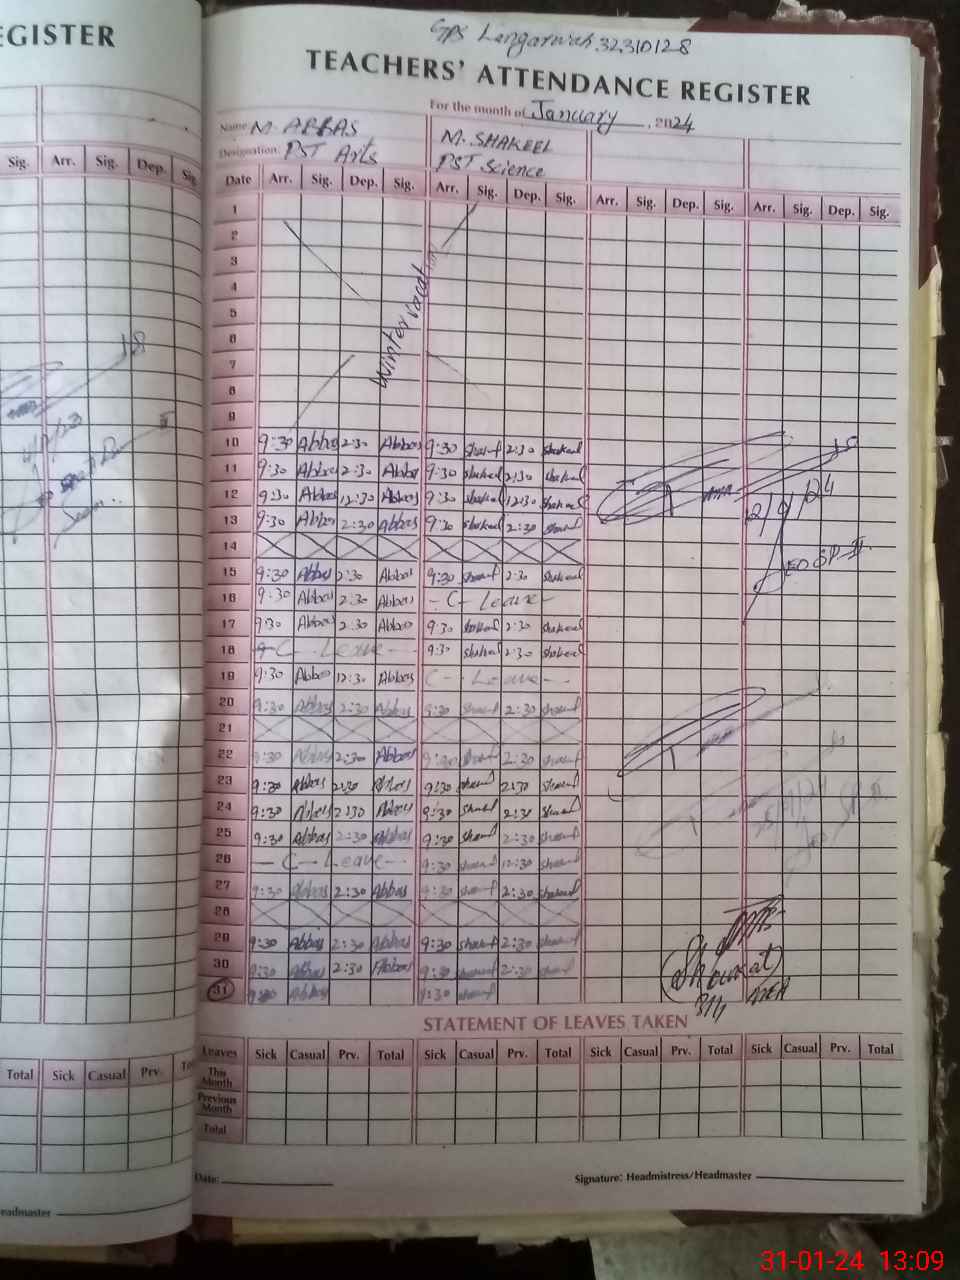 EGISTER
GPS Langarwah 32310128
TEACHERS' ATTENDANCE REGISTER
For the month of January, 2024
Name M. ABBAS M. SHAKEEL
Designation: PST Arts PST Science
Sig. Arr. Sig. Dep. Sig
Date Arr. Sig. Dep. Sig. Arr. Sig. Dep. Sig. Arr. Sig. Dep. Sig. Arr. Sig. Dep. Sig.
1
2
3
4
5
6
7
8
9
Winter vacation
10 9:30 Abbas 2:30 Abbas 9:30 Shakeel 2:30 Shakeel
11 9:30 Abbas 2:30 Abbas 9:30 Shakeel 2:30 Shakeel
12 9:30 Abbas 12:30 Abbas 9:30 Shakeel 12:30 Shakeel
13 9:30 Abbas 2:30 Abbas 9:30 Shakeel 2:30 Shakeel
12/01/24
14
15 9:30 Abbas 2:30 Abbas 9:30 Shakeel 2:30 Shakeel
16 9:30 Abbas 2:30 Abbas - C - Leave -
17 9:30 Abbas 2:30 Abbas 9:30 Shakeel 2:30 Shakeel
18 C - Leave - 9:30 Shakeel 2:30 Shakeel
19 9:30 Abbas 12:30 Abbas C - Leave -
20 9:30 Abbas 2:30 Abbas 9:30 Shakeel 2:30 Shakeel
21
22 9:30 Abbas 2:30 Abbas 9:30 Shakeel 2:30 Shakeel
23 9:30 Abbas 2:30 Abbas 9:30 Shakeel 2:30 Shakeel
24 9:30 Abbas 2:30 Abbas 9:30 Shakeel 2:30 Shakeel
25 9:30 Abbas 2:30 Abbas 9:30 Shakeel 2:30 Shakeel
26 - C - Leave - 9:30 Shakeel 12:30 Shakeel
27 9:30 Abbas 2:30 Abbas 9:30 Shakeel 2:30 Shakeel
28
29 9:30 Abbas 2:30 Abbas 9:30 Shakeel 2:30 Shakeel
30 9:30 Abbas 2:30 Abbas 9:30 Shakeel 2:30 Shakeel
31 9:30 Abbas 9:30 Shakeel
(Showkat)
31/1 MEA
STATEMENT OF LEAVES TAKEN
Leaves Sick Casual Prv. Total Sick Casual Prv. Total Sick Casual Prv. Total Sick Casual Prv. Total
Total Sick Casual Prv.
This Month
Previous Month
Total
Date: Signature: Headmistress/Headmaster
eadmaster
31-01-24 13:09